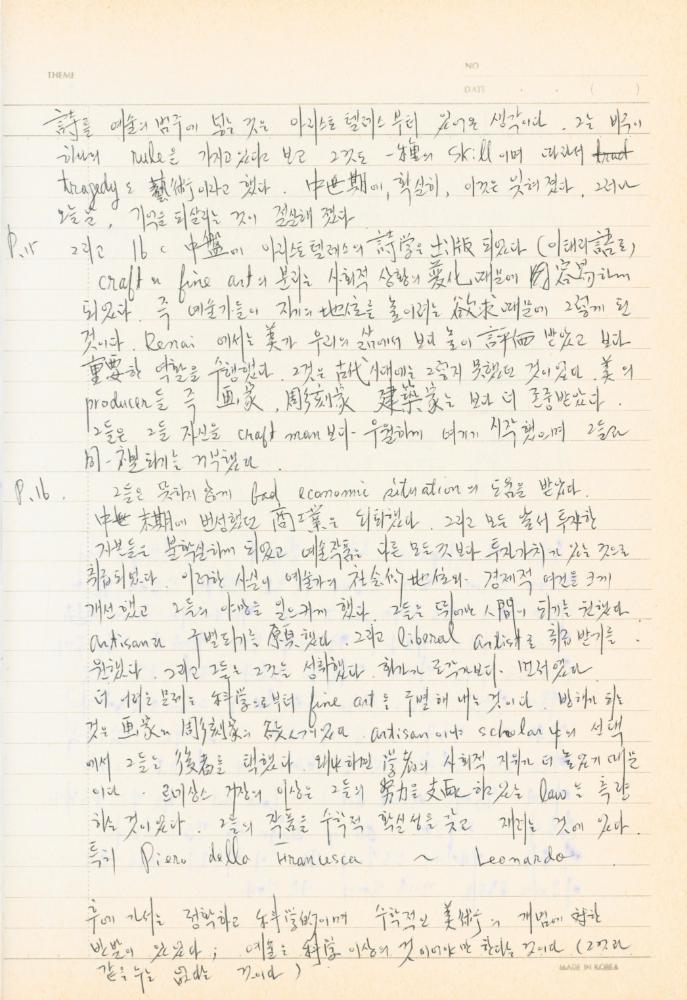 THEME
NO
DATE . . ( )
詩를 예술의 범주에 넣는 것은 아리스토텔레스부터 있어온 생각이다. 그는 비극이
하나의 rule을 가지고 있다고 보고 그것도 一種의 skill이며 따라서
tragedy도 藝術이라고 했다. 中世期에, 확실히, 이것은 잊혀졌다. 그러나
오늘날, 기억을 되살리는 것이 절실해졌다
P.15 그리고 16c 中盤에 아리스토텔레스의 詩学은 出版되었다 (이태리語로)
craft와 fine art의 분리는 사회적 상황의 変化 때문에 容易하게
되었다. 즉 예술가들이 자기의 地位를 높이려는 欲求 때문에 그렇게 된
것이다. Renai 에서는 美가 우리의 삶에서 보다 높이 評価받았고 보다
重要한 역할을 수행했다. 그것은 古代시대에는 그렇지 못했던 것이었다. 美의
producer들 즉 画家, 彫刻家 建築家는 보다 더 존중받았다.
그들은 그들 자신을 craft man보다 우월하게 여기기 시작했으며 그들과
同一視되기를 거부했다.
P.16. 그들은 뜻하지 않게 bad economic situation의 도움을 받았다.
中世 末期에 번성했던 商工業은 쇠퇴했다. 그리고 모든 앞서 투자한
자본들은 불확실하게 되었고 예술작품은 다른 모든 것보다 투자가치가 있는 것으로
취급되었다. 이러한 사실이 예술가의 社会的 地位와 경제적 여건을 크게
개선했고 그들의 야망을 일으키게 했다. 그들은 뛰어난 人間이 되기를 원했다.
artisan과 구별되기를 원했다. 그리고 liberal artist로 취급받기를
원했다. 그리고 그들은 그것을 성취했다. 화가가 조각가보다 먼저였다
더 어려운 문제는 科学으로부터 fine art를 구별해 내는 것이다. 방해가 되는
것은 画家와 彫刻家의 欲心이었다. artisan이냐 scholar냐의 선택
에서 그들은 後者를 택했다. 왜냐하면 学者의 사회적 지위가 더 높았기 때문
이다. 르네상스 거장의 이상은 그들의 努力을 支配하고 있는 law를 측량
하는 것이었다. 그들의 작품을 수학적 확실성을 갖고 재려는 것에 있다.
특히 Piero della Francesca ~ Leonardo
후에 가서는 정확하고 科学的이며 수학적인 美術의 개념에 対한
반발이 있었다; 예술은 科学 이상의 것이어야만 한다는 것이다 (그것과
같을 수는 없다는 것이다)
MADE IN KOREA